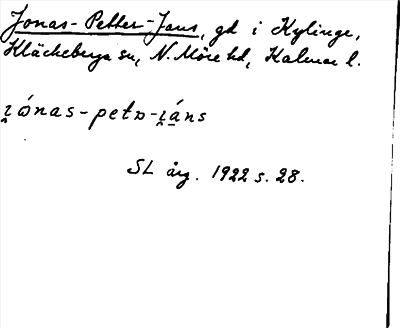 Jonas-Petter-Jans, gd i Kylinge,
Kläckeberga sn, N. Möre hd, Kalmar l.
i̯ónas-petɒ-i̯áns
SL årg. 1922 s. 28.